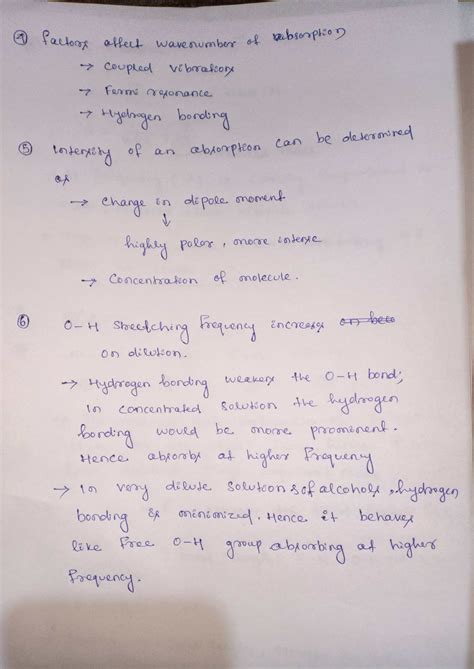 ④ Factors affect wavenumber of absorption
→ Coupled vibrations
→ Fermi resonance
→ Hydrogen bonding
⑤ Intensity of an absorption can be determined
as
→ Change in dipole moment
↓
highly polar, more intense
→ Concentration of molecule.
⑥ O-H Streetching frequency increases on beco
on dilution.
→ Hydrogen bonding weakens the O-H bond;
in concentrated solution the hydrogen
bonding would be more prominent.
Hence absorbs at higher frequency
→ In very dilute solutions of alcohols, hydrogen
bonding is minimized. Hence it behaves
like free O-H group absorbing at higher
frequency.